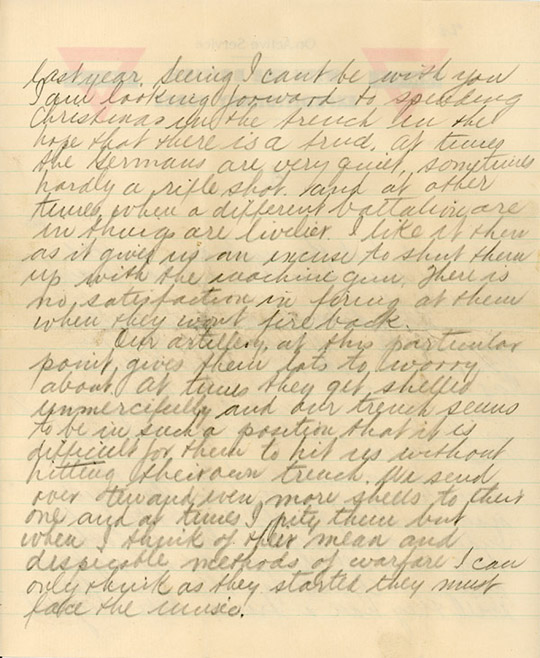 On Active Service
last year. Seeing I cant be with you
I am looking forward to spending
Christmas in the trench in the
hope that there is a trud. at times
the Germans are very quiet, sometimes
hardly a rifle shot. and at other
times when a different battalion are
in things are livlier. I like it then
as it gives us an excuse to shut them
up with the machine gun. There is
no, satisfaction in firing at them
when they wont fire back.
Our artillery at this particular
point, gives them lots to worry
about. at times they get shelled
unmercifully and our trench seems
to be in such a position that it is
difficult for them to hit us without
hitting their own trench. We send
over ten and even more shells to their
one and at times I pity them but
when I think of their mean and
despicable methods of warfare I can
only think as they started they must
face the music.